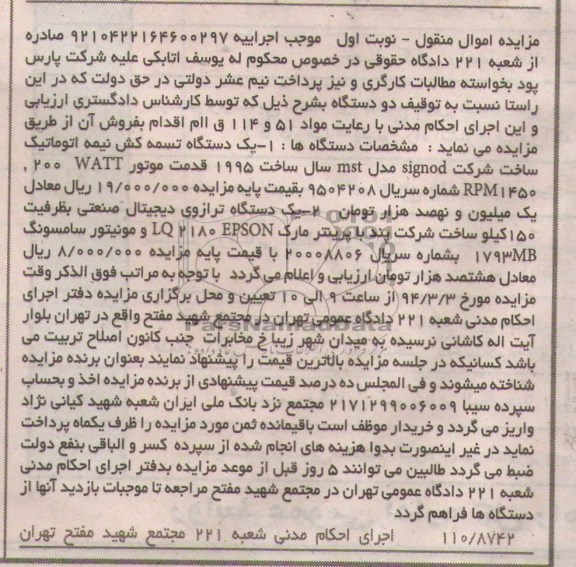 مزایده اموال منقول - نوبت اول  موجب اجراییه ۹۲۱۰۴۲۲۱۶۴۶۰۰۲۹۷ صادره
از شعبه ۲۲۱ دادگاه حقوقی در خصوص محکوم له یوسف اتابکی علیه شرکت پارس
پود بخواسته مطالبات کارگری و نیز پرداخت نیم عشر دولتی در حق دولت که در این
راستا نسبت به توقیف دو دستگاه بشرح ذیل که توسط کارشناس دادگستری ارزیابی
و این اجرای احکام مدنی با رعایت مواد ۵۱ و ۱۱۴ ق اام اقدام بفروش آن از طریق
مزایده می نماید : مشخصات دستگاه ها : ۱-یک دستگاه تسمه کش نیمه اتوماتیک
ساخت شرکت signod مدل mst سال ساخت ۱۹۹۵ قدمت موتور WATT ۲۰۰ ,
RPM۱۴۵۰ شماره سریال ۹۵۰۴۲۰۸ بقیمت پایه مزایده ۱۹/۰۰۰/۰۰۰ ریال معادل
یک میلیون و نهصد هزار تومان ۲-یک دستگاه ترازوی دیجیتال صنعتی بظرفیت
۱۵۰کیلو ساخت شرکت پند با پرینتر مارک LQ ۲۱۸۰ EPSON و مونیتور سامسونگ
۱۷۹۳MB بشماره سریال ۲۰۰۰۸۸۰۶ با قیمت پایه مزایده ۸/۰۰۰/۰۰۰ ریال
معادل هشتصد هزار تومان ارزیابی و اعلام می گردد با توجه به مراتب فوق الذکر وقت
مزایده مورخ ۹۴/۳/۳ از ساعت ۹ الی ۱۰ تعیین و محل برگزاری مزایده دفتر اجرای
احکام مدنی شعبه ۲۲۱ دادگاه عمومی تهران در مجتمع شهید مفتح واقع در تهران بلوار
آیت اله کاشانی نرسیده به میدان شهر زیبا خ مخابرات جنب کانون اصلاح تربیت می
باشد کسانیکه در جلسه مزایده بالاترین قیمت را پیشنهاد نمایند بعنوان برنده مزایده
شناخته میشوند و فی المجلس ده درصد قیمت پیشنهادی از برنده مزایده اخذ و بحساب
سپرده سیبا ۲۱۷۱۲۹۹۰۰۶۰۰۹ مجتمع نزد بانک ملی ایران شعبه شهید کیانی نژاد
واریز می گردد و خریدار موظف است باقیمانده ثمن مورد مزایده را ظرف یکماه پرداخت
نماید در غیر اینصورت بدوا هزینه های انجام شده از سپرده کسر و الباقی بنفع دولت
ضبط می گردد طالبین می توانند ۵ روز قبل از موعد مزایده بدفتر اجرای احکام مدنی
شعبه ۲۲۱ دادگاه عمومی تهران در مجتمع شهید مفتح مراجعه تا موجبات بازدید آنها از
دستگاه ها فراهم گردد
۱۱۰/۸۷۴۲ اجرای احکام مدنی شعبه ۲۲۱ مجتمع شهید مفتح تهران
ParsNamadData